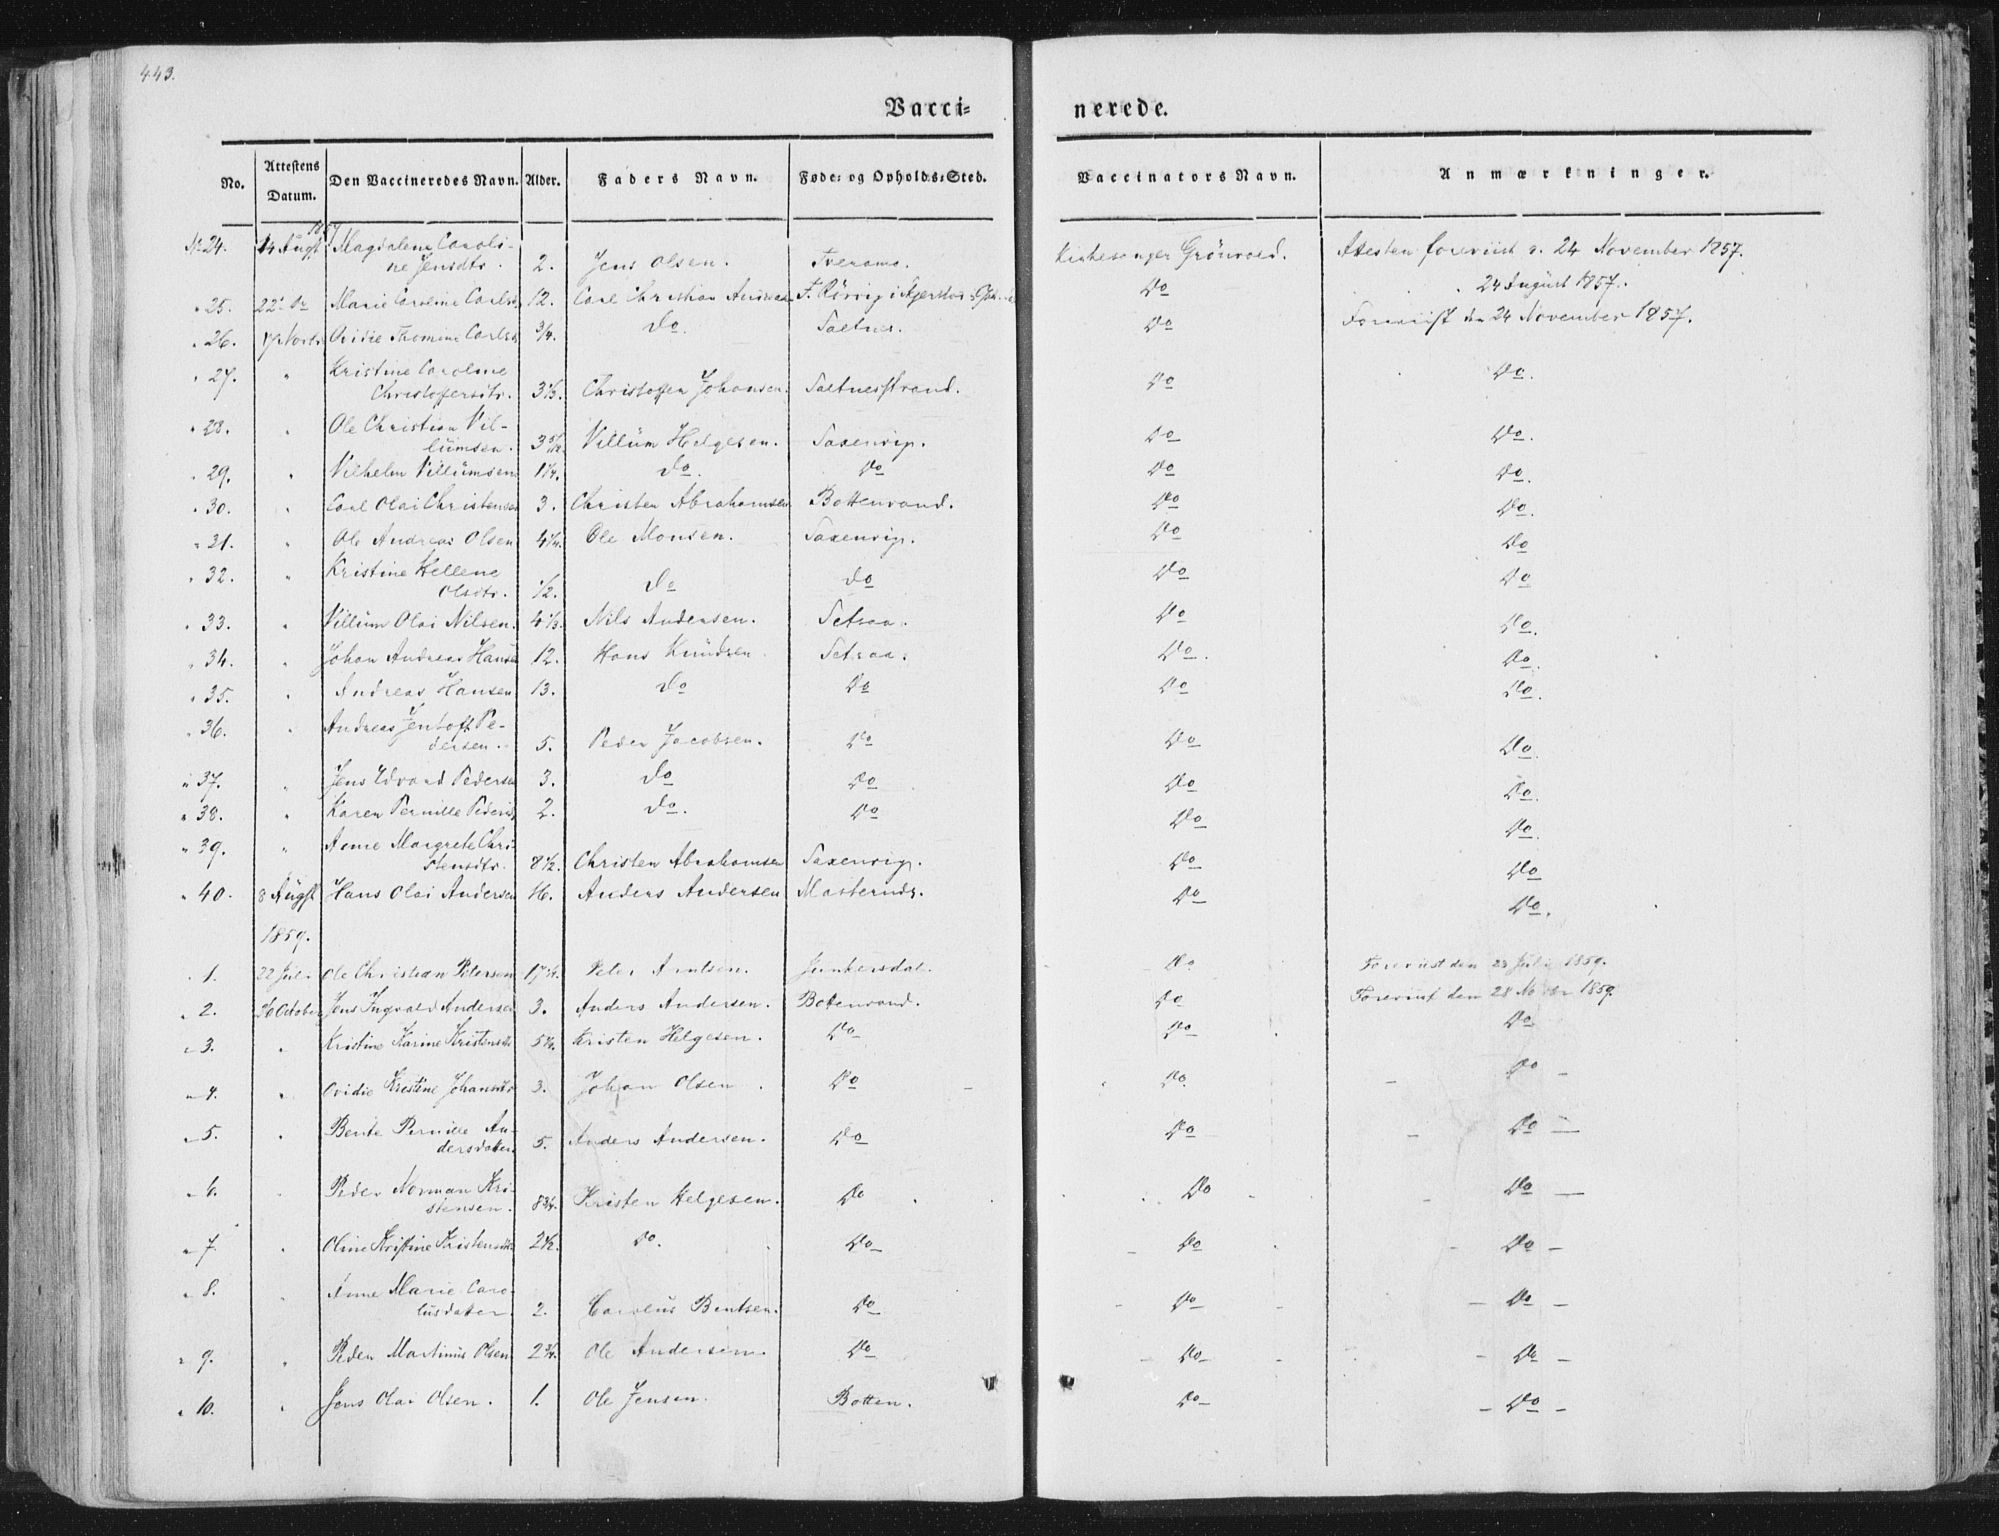 443.
Vaccinerede.
No. Attestens Datum. Den Vaccineredes Navn. Alder. Faders Navn. Føde- og Opholds-Sted. Vaccinators Navn. Anmærkninger.
1857
No 24. 14 Augst Magdalena Caroli-
ne Jensdtr. 2. Jens Olsen. Tveraamo. Kirkesanger Grönvold. Attesten foreviist d. 24 November 1857.
" 25. 22 do Marie Caroline Carlsd 12. Carl Christian Andreas Do " 24 August 1857.
" 26. 17 Novbr Ovidie Thomine Carlsd 3/4. Do Saltnes. Do Foreviist den 24 November 1857.
" 27. " Kristine Caroline
Christoffersdtr. 3 1/3. Christoffer Johansen. Saltnesstrand. Do Do.
" 28. " Ole Christian Vil-
lumsen. 3 5/12. Villum Helgesen. Saxenvig. Do Do.
" 29. " Vilhelm Villumsen 1 1/4. Do. Do Do Do.
" 30. " Carl Olai Christensen 3. Christen Abrahamsen Bottenvand. Do Do.
" 31. " Ole Andreas Olsen 4 1/4. Ole Monsen. Saxenvig. Do Do
" 32. " Kristine Hellene
Olsdtr. 1/2. Do Do Do Do
" 33. " Villum Olai Nilsen. 4 1/3. Nils Andersen. Setraa. Do Do.
" 34. " Johan Andreas Hansen 12. Hans Knudsen Setraa. Do. Do.
" 35. " Andreas Hansen 13. Do Do Do Do.
" 36. " Andreas Jentoft Pe-
dersen. 5. Peder Jacobsen. Do Do Do.
" 37. " Jens Edvard Pedersen 3. Do Do Do Do.
" 38. " Karen Pernille Pedersd 2. Do. Do Do Do.
" 39. " Anne Margrete Chri-
stensdtr. 8 1/2. Christen Abrahamsen Saxenvig. Do Do
" 40. 8 Augst Hans Olai Andersen Anders Andersen Do Do.
1859.
" 1. 22 Juli Ole Christian Petersen Peter Arntsen. Junkersdal. Do Foreviist den 23 Juli 1859.
" 2. 26 October Jens Ingvald Andersen 3. Anders Andersen. Bottenvand. Do Foreviist den 28 1859.
" 3. " Kristine Karine Kristensdtr 5 1/4. Kristen Helgesen. Do Do Do
" 4. " Ovidie Kristine Johansdtr 3. Johan Olsen. Do Do. Do –
" 5. " Bente Pernille An-
dersdatter 5. Anders Andersen. Do Do – Do –
" 6. " Peder Norman Kri-
stensen. 8 3/4. Kristen Helgesen. Do Do – Do –
" 7. " Oline Kristine Kristensdtr 2 1/2. Do. Do – – Do – Do –
" 8. " Anne Marie Caro-
lusdatter 2. Carolus Bentsen. Do – Do – – Do –
" 9. " Peder Martinus Olsen 2 3/4. Ole Andersen. Do – Do – – Do –
" 10. " Jens Olai Olsen. 1. Ole Jensen. Botten. Do – – Do –